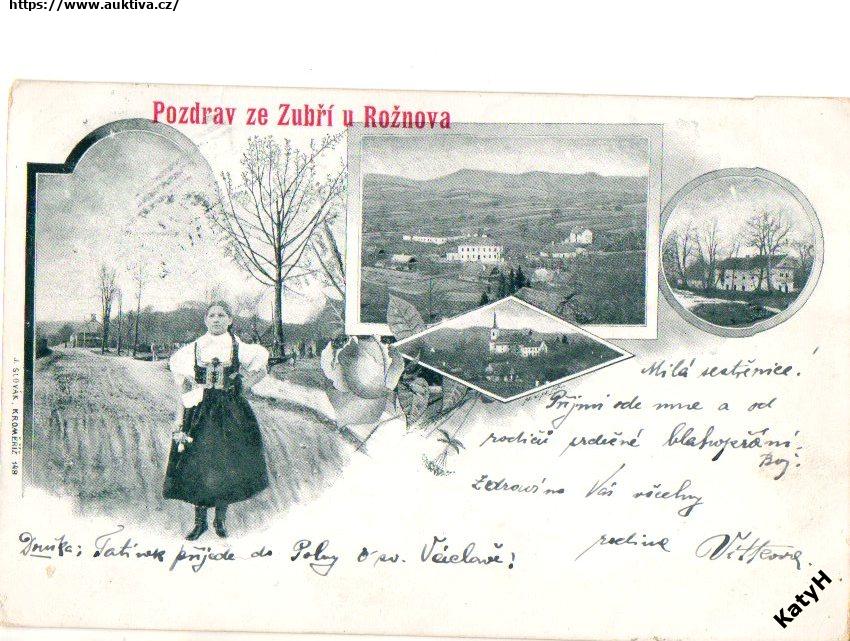 https://www.auktiva.cz/
Pozdrav ze Zubří u Rožnova
J. SLOVÁK, KROMĚŘÍŽ 148
Milá sestřenice!
Přijmi ode mne a od
rodičů srdečné blahopřání.
Zdravíme Vás všechny
rodina
Tatínek přijede do Polny o sv. Václavě!
KatyH